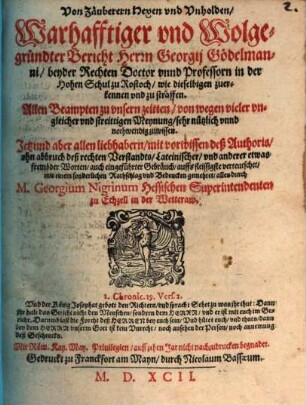 2.
Von Zäuberern Hexen vnd Vnholden/
Warhafftiger vnd Wolge-
gründter Bericht Herrn Georgij Gödelman-
ni/ beyder Rechten Doctor vnnd Professorn in der
Hohen Schul zu Rostoch/ wie dieselbigen zuer-
kennen vnd zu straffen.
Allen Beampten zu vnsern zeiten/ von wegen vieler vn-
gleicher vnd streittigen Meynung/ sehr nützlich vnnd
nothwendig zuwissen.
Jetzund aber allen liebhabern/ mit vorwissen deß Authoris/
ohn abbruch deß rechten Verstands/ Lateinischer/ vnd anderer etwas
frembder Worten/ auch eingeführter
mit einem sonderlichen Rathschlag vnd Bedencken gemehret: alles durch
M. Georgium Nigrinum Hessischen Superintendenten
zu Echzell in der Wetteraw.
2. Chronic. 19. Vers. 2.
Vnd der König Josaphat gebot den Richtern/ vnd sprach: Sehet zu was jhr thut: Dann
jhr halt das Gericht nicht den Menschen/ sondern dem HERRN/ vnd er ist mit euch im Ge-
richt. Darumb laßt die Forcht deß HERREN bey euch seyn/ Vnd hütet euch/ vnd thuts: dann
bey dem HERRN vnserm Gott ist kein Vnrecht/ noch ansehen der Person/ noch annemung
deß Geschencks.
Mit Röm. Kay. May. Privilegien/ auff zehen Jar nicht nachzudrucken begnadet.
Gedruckt zu Franckfort am Mayn/ durch Nicolaum Bassæum.
M. D. XCII.